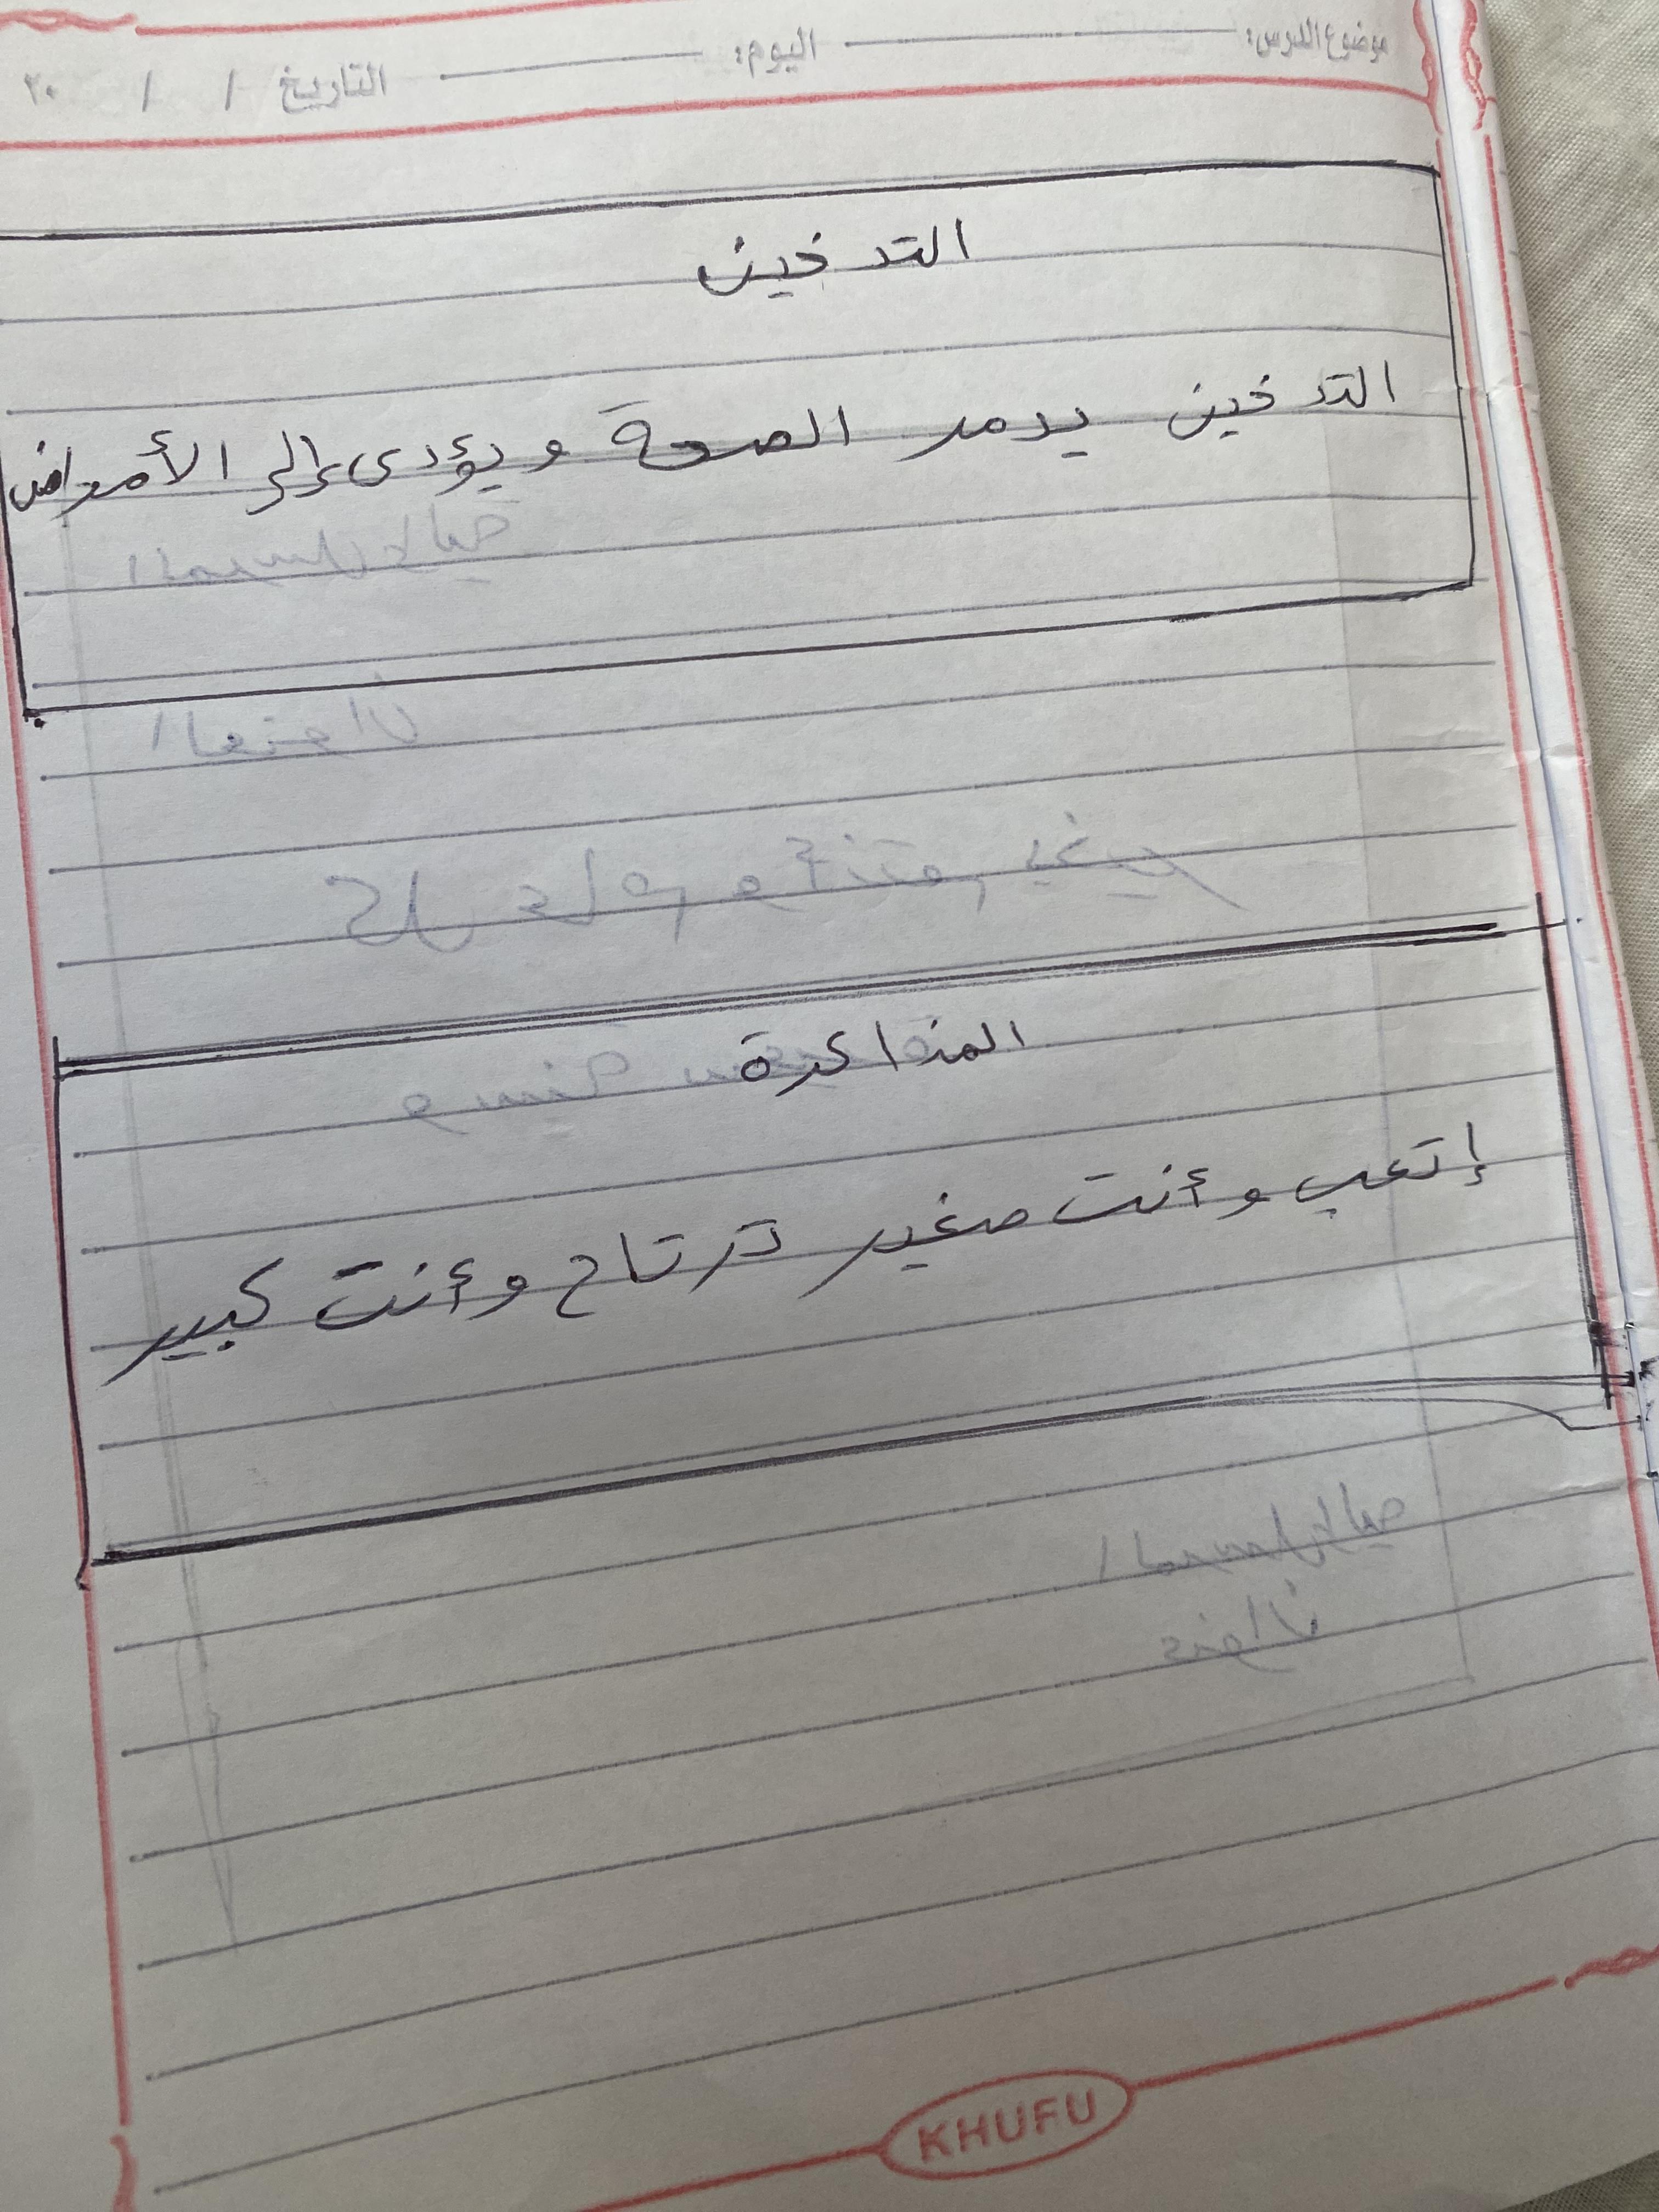 موضوع الدرس: اليوم: التاريخ / / ٢٠
التدخين
التدخين يدمر الصحة ويؤدى إلى الأمراض
المذاكرة
إتعب وأنت صغير ترتاح وأنت كبير
KHUFU